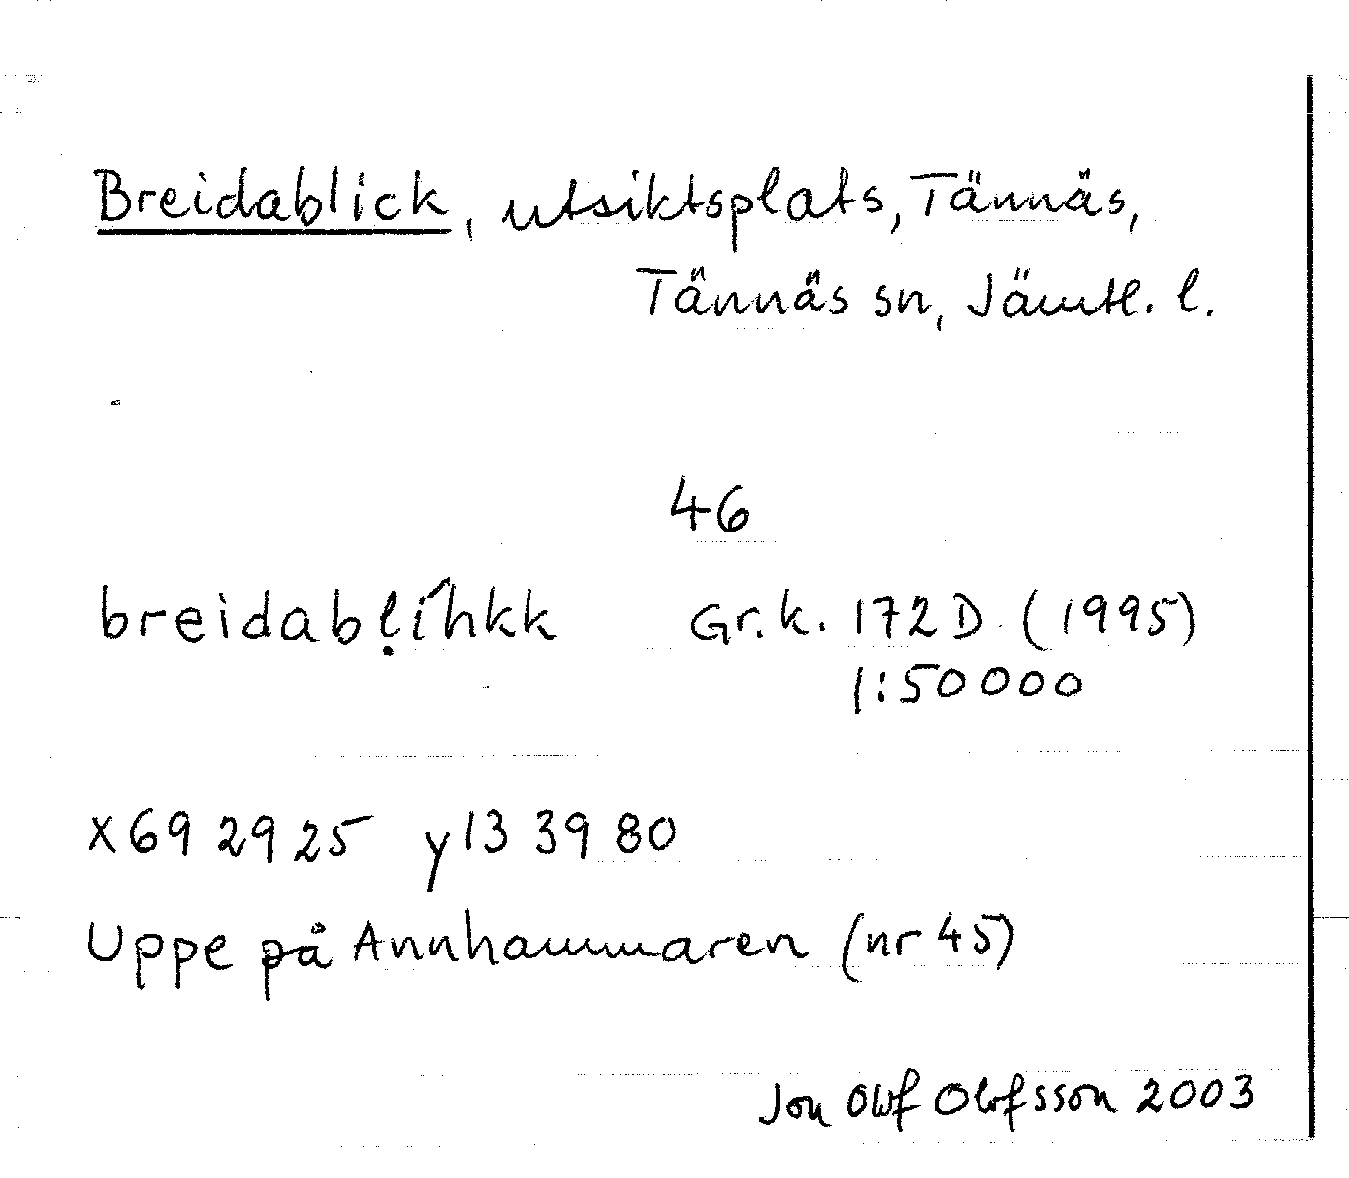 Breidablick, utsiktsplats, Tännäs,
Tännäs sn, Jämtl. l.
46
breidabḷíhkk Gr.k. 172D (1995)
1:50000
x69 29 25 y13 39 80
Uppe på Annhammaren (nr 45)
Jon Olof Olofsson 2003